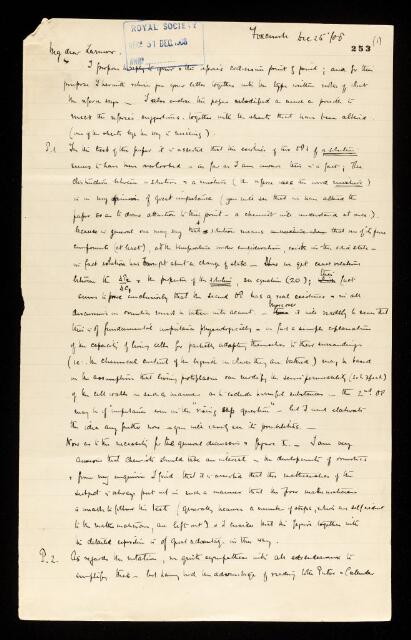 Foxcombe Dec 26/06
(1)
253
ROYAL SOCIETY
31 DEC. 1906
My dear Larmor,
I propose to reply to your & the referee's criticism point by point; and for this
purpose I herewith return you your letter together with the type written notes of what
the referee says. I also enclose the paper modified as much as possible to
meet the referee's suggestions, together with the sheets that have been altered
(one of the sheets by the way is missing).
P.1. In the text of the paper it is asserted that the existence of two OP's of a solution
seems to have been overlooked — as far as I am aware this is a fact; the
distinction between a solution & a mixture (the referee uses the word mixture)
is in my opinion of great importance (you will see that we have altered the
paper so as to draw attention to this point — a chemist will understand at once).
because in general one may say that a solution means that one of its pure
components (at least), at the temperature under consideration, exists in the solid state —
in fact solution has brought about a change of state. we get exact relation
between the & the properties of the solution, see equation (20); this fact
seems to prove conclusively that the second OP has a real existence & in all
discussions on osmotics must be taken into account. — Moreover it will readily be seen that
this is of fundamental importance physiologically — in fact a simple explanation
of the capacity of living cells for partially adapting themselves to their surroundings
(i.e. the chemical content of the liquids in which they are bathed) may be based
on the assumption that living protoplasm can modify the semipermeability
of the cell walls in such a manner as to exclude harmful substances — the 2nd OP
may be of importance even in the "rising sap question" — but I need not elaborate
the idea any further now – you will surely see its possibilities. —
Now as to the necessity for the general discussion & figure 1. — I am very
anxious that chemists should take an interest in the development of osmotics
& from my enquiries I find that it is invariable that the mathematics of the
subject is always put out in such a manner that the poor mathematician
is unable to follow the text (generally because a number of steps, which are self evident
to the mathematician, are left out) & I consider that the figure together with
its detailed exposition is of great advantage in this way.
P.2. As regards the notation, we quite sympathise with all endeavours to
simplify this — but having had the advantage of reading both Porter & Callendar